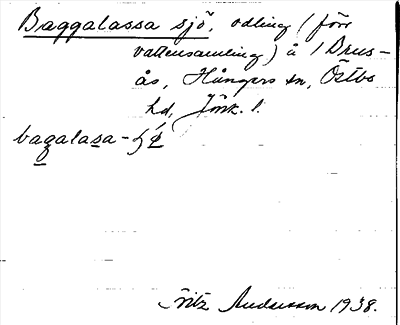 Baggalassa sjö, odling (förr
vattensamling) å /Drus-
ås, Hångers sn, Östbo
hd, Jönk. l.
bagalasa-
Fritz Andersson 1938.